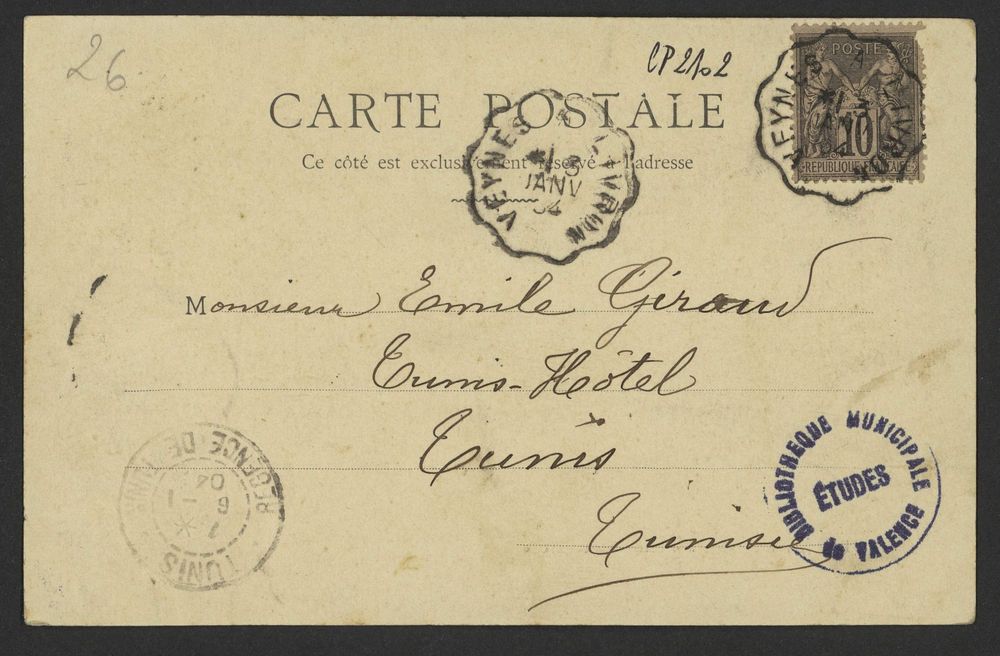 26
CP 2102
POSTE
10
REPUBLIQUE FRANÇAISE
VEYNES A LIVRON
CARTE POSTALE
Ce côté est exclusivement réservé à l'adresse
VEYNES A LIVRON
3
JANV
04
Monsieur Emile Giraud
Tunis-Hôtel
Tunis
Tunisie
REGENCE DE TUNIS
6 - 1
04
TUNIS
BIBLIOTHEQUE MUNICIPALE
ÉTUDES
de VALENCE